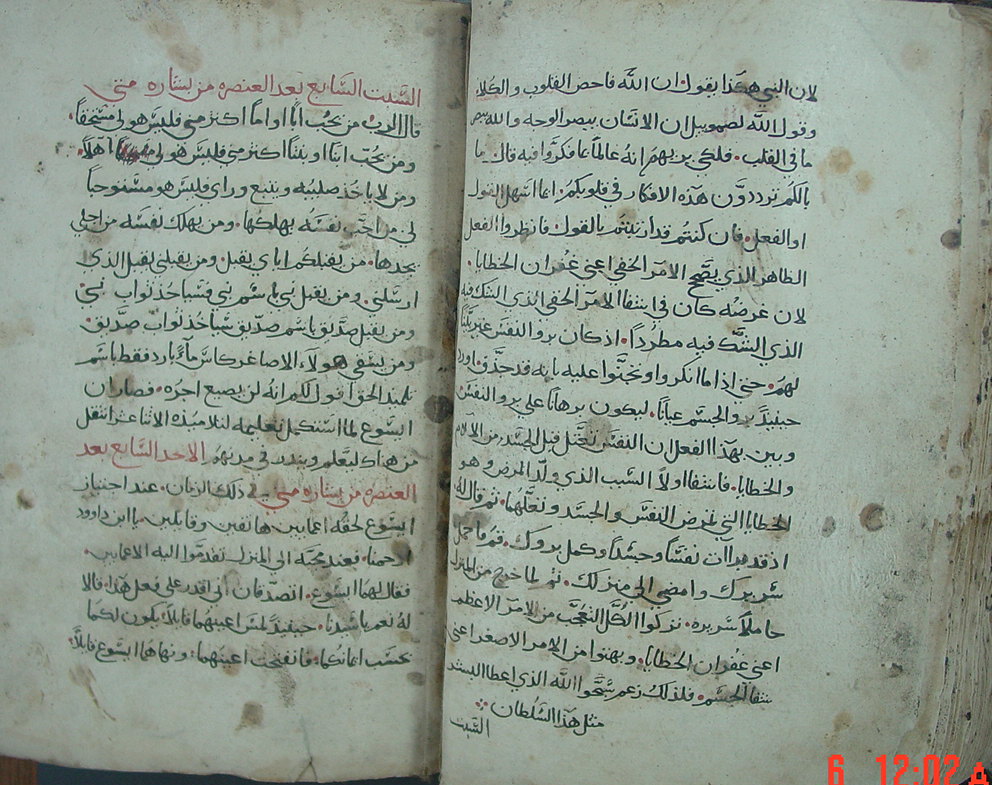 لان النبي هكذا يقول ان الله فاحص القلوب والكلاء
وقول الله لصمويل ان الانسان يبصر الوجه والله يبصر
ما في القلب. فلكي يريهم انه عالماً بما فكروا فيه قال ما
بالكم ترددون هذه الافكار في قلوبكم. ايما اسهل القول
او الفعل. فان كنتم قد ارتبتم بالقول فانظروا الفعل
الظاهر الذي يصحح الامر الخفي اعني غفران الخطايا.
لان غرضه كان في اشفا الامر الخفي الذي الشك فيه
الذي الشك فيه مطرداً. اذ كان برو النفس غير
لهم. حتى اذا ما انكروا وتجنوا عليه بانه قد جدّف. اورد
حينيذ برو الجسم عياناً. ليكون برهاناً على برو النفس
وبين بهذا الفعل ان النفس تعتل قبل الجسد من الالام
والخطايا. فاشفا اولاً السبب الذي ولد المرض وهو
الخطايا التي تمرض النفس والجسد وتعلهما. ثم قال له
اذ قد برات نفساً وجسداً وكمل بروك. قم فاحمل
سريرك وامضي الى منزلك. ثم لما خرج من المنزل
حاملاً سريره. تركوا الكل التعجب من الامر الاعظم
اعني غفران الخطايا. وبهتوا من الامر الاصغر اعني
شفا الجسم. فلذلك زعم سبحوا الله الذي اعطا البشر
مثل هذا السلطان
السبت
السبت السابع بعد العنصره من بشاره متى
قال الرب من يحب اباً او اماً اكثر مني فليس هو لي مستحقاً.
ومن يحب ابناً او بنتاً اكثر مني فليس هو لي اهلاً.
ومن لا ياخذ صليبه ويتبع وراي فليس هو مستوجباً
لي من احب نفسه يهلكها. ومن يهلك نفسه من اجلي
يجدها. من يقبلكم اياي يقبل. ومن يقبلني يقبل الذي
ارسلني. ومن يقبل نبي باسم نبي فسياخذ ثواب نبي
ومن يقبل صديق باسم صديق سياخذ ثواب صديق.
ومن يسقي هولاء الاصاغر كاس ماء بارد فقط باسم
تلميذ الحق اقول لكم انه لن يضيع اجره. فصار ان
ايسوع لما استكمل تعليمه لتلاميذه الاثنا عشر انتقل
من هناك ليعلم وينذر في مدنهم الاحد السابع بعد
العنصره من بشاره متى في ذلك الزمان. عند اجتياز
ايسوع لحقه اعمايين هاتفين وقايلين. يا ابن داوود
ارحمنا. فعند مجيه الى المنزل تقدموا اليه الاعمايين.
فقال لهما ايسوع. اتصدقان اني اقدر على فعل هذا. قالا
له نعم يا سيدنا. حينيذ لمس اعينهما قايلاً. يكون لكما
بحسب امانتكما. فانفتحت اعينهما. ونهاهما ايسوع قايلاً.
6 12:02 A